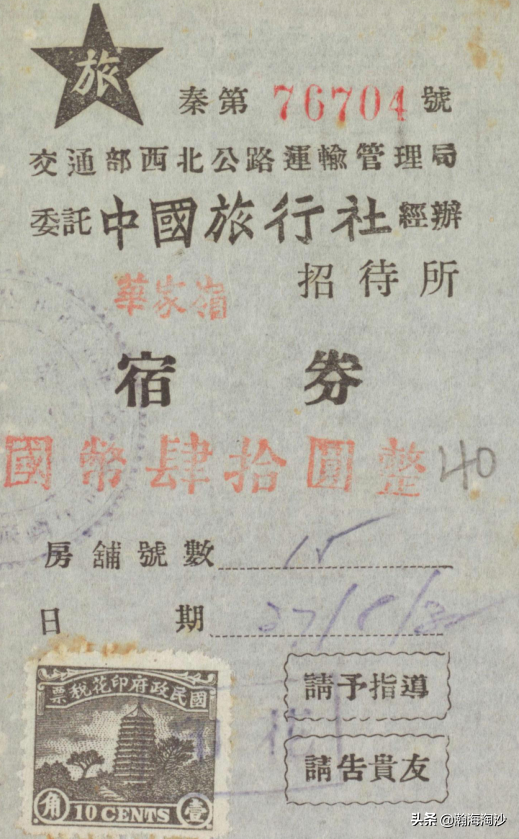 旅
秦第 76704 號
交通部西北公路運輸管理局
委託中國旅行社經辦
華家嶺 招待所
宿券
國幣肆拾圓整 40
房舖號數 15
日期
請予指導
請告貴友
國民政府印花稅票
角 10 CENTS 壹
头条 @瀚海淘沙